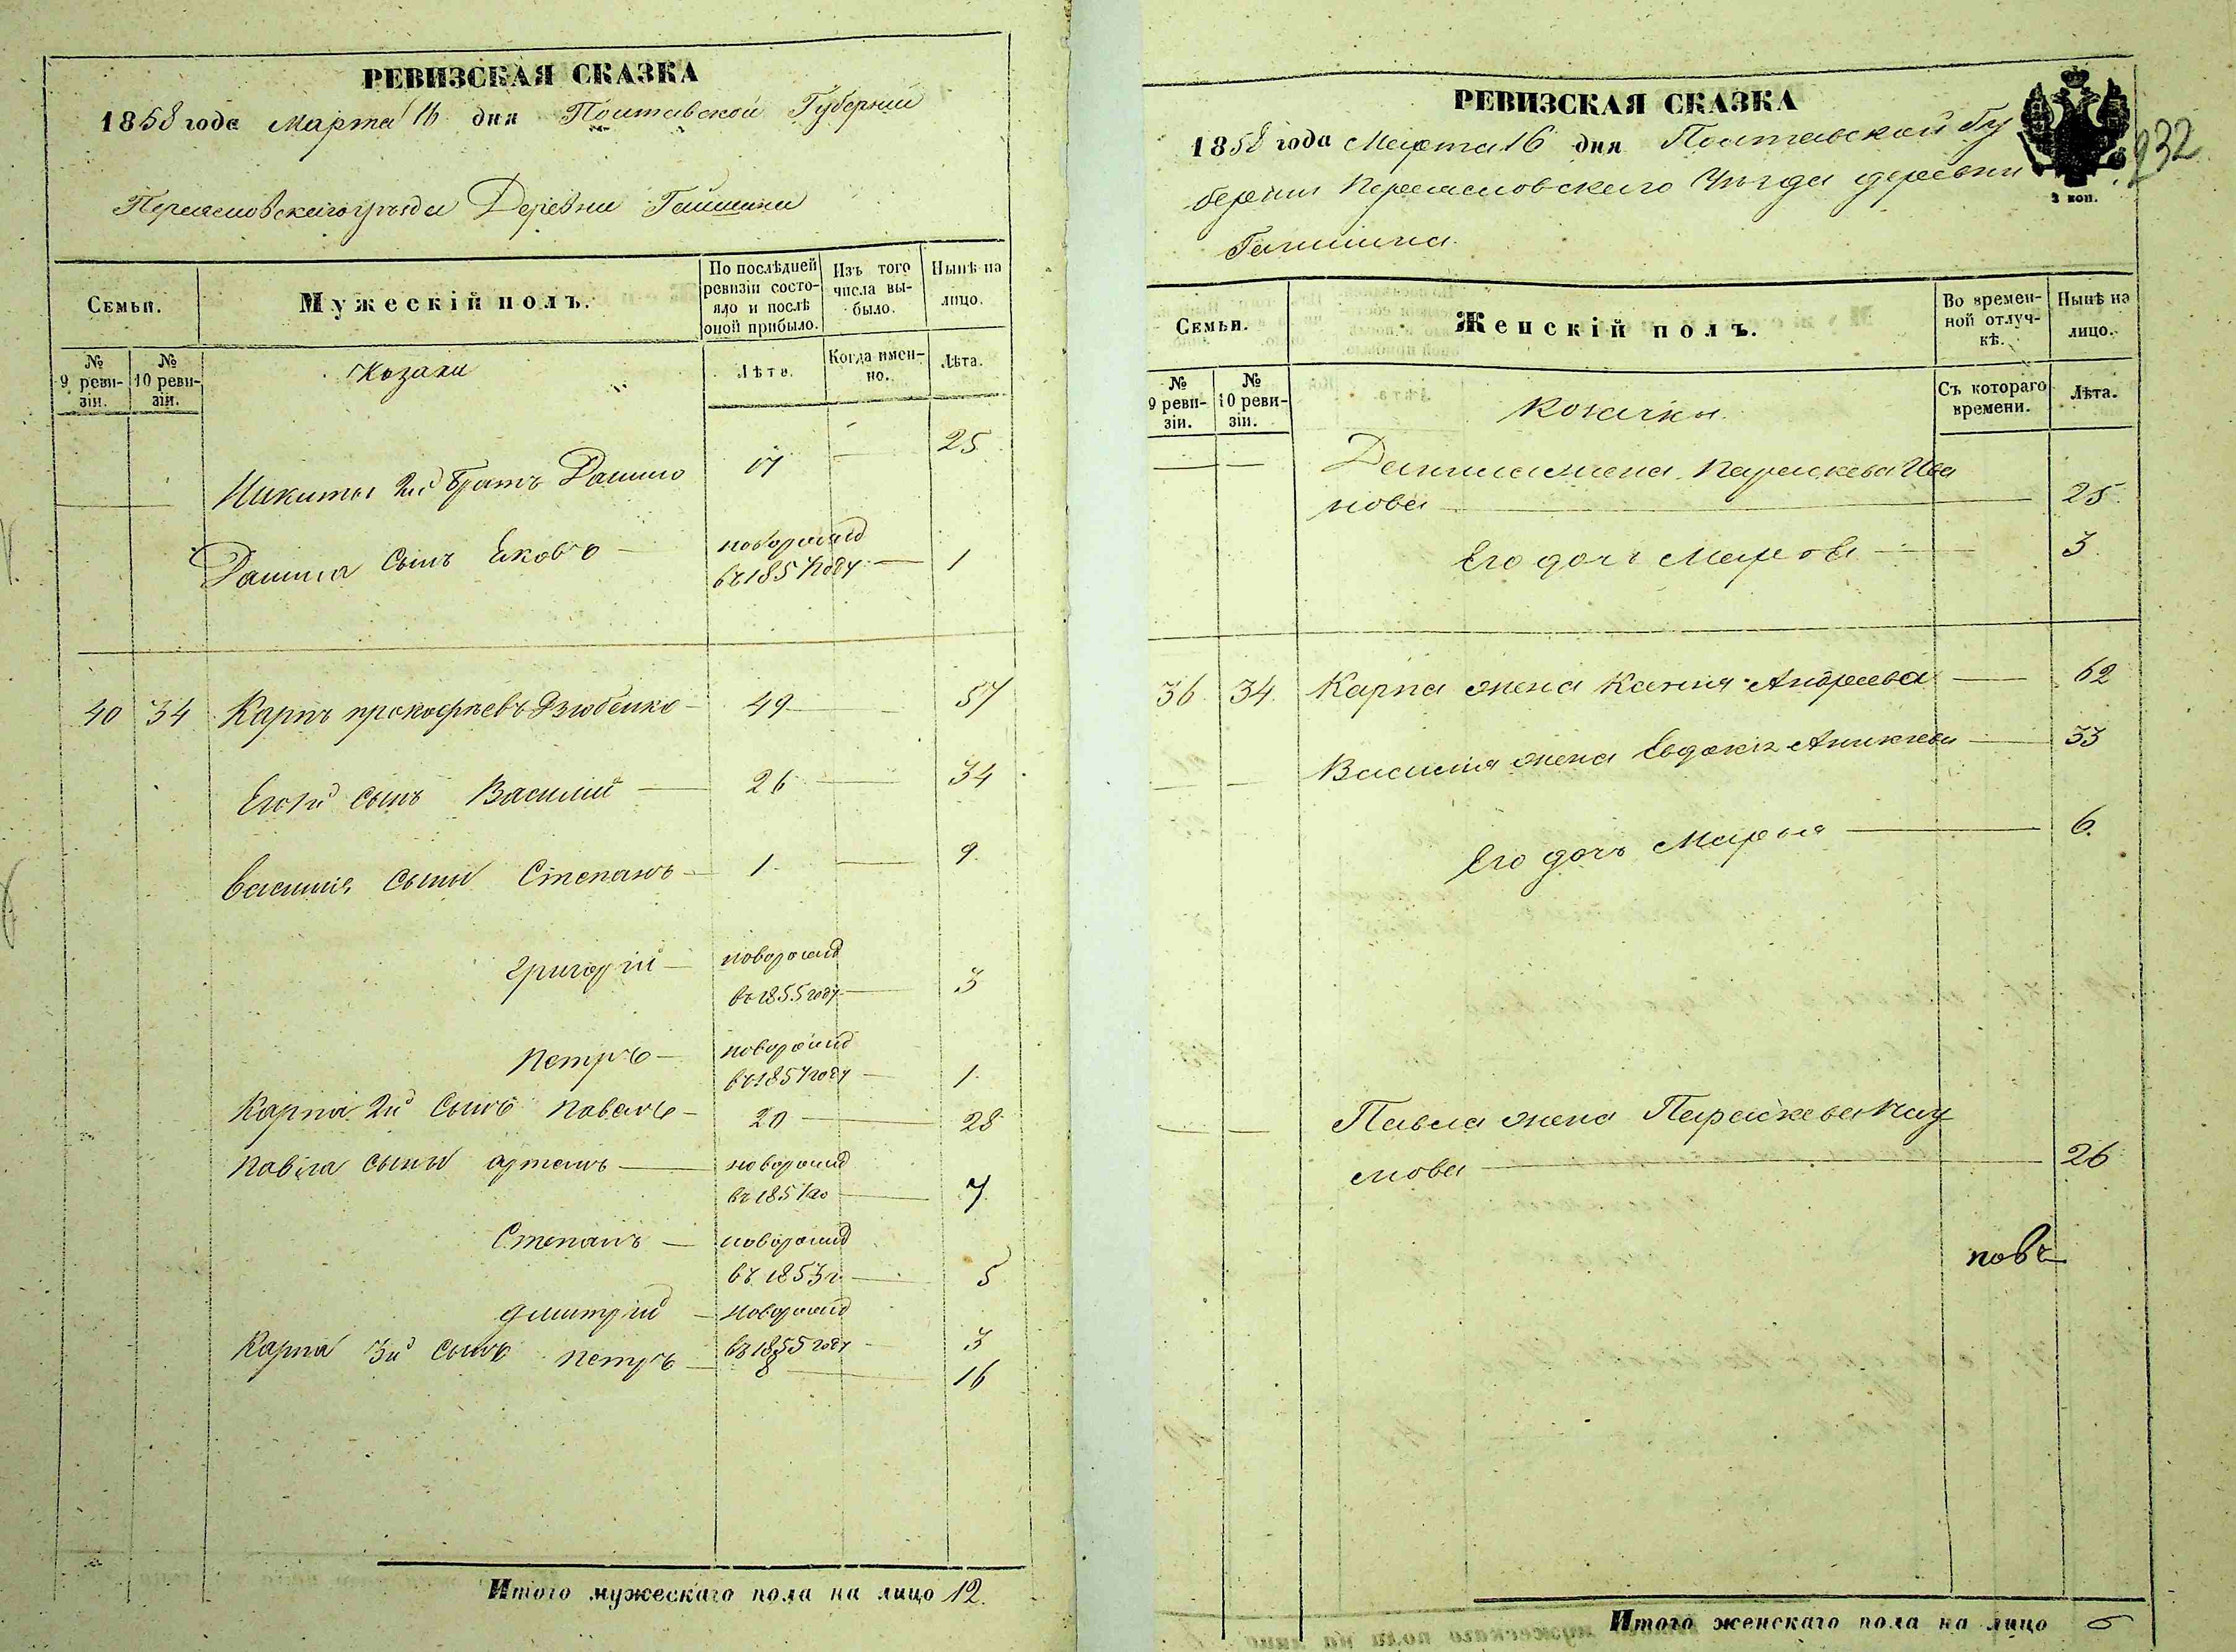 РЕВИЗСКАЯ СКАЗКА
1858 года Марта 16 дня Полтавской Губернии
Переяславскаго уѣзда Деревни Гайшина
Семьи.
Мужескій полъ.
По послѣдней ревизіи состояло и послѣ оной прибыло.
Изъ того числа выбыло.
Нынѣ на лицо.
№ 9 ревизіи.
№ 10 ревизіи.
Козаки
Лѣта.
Когда именно.
Лѣта.
Никиты 2й братъ Данило 17 — 25
Данила сынъ Яковъ — новорожд
въ 1857 году — 1
40 34 Карпъ прокофьевъ Дзюбенко — 49 — 57
Его 1й сынъ Василий — 26 — 34
Василия сыны Степанъ — 1 — 9.
Григорій — новорожд
въ 1855 году — 3
Петръ — новорожд
въ 1857 году — 1.
Карпа 2й сынъ Павелъ — 20 — 28
Павла сыны Артемъ — новорожд
въ 1851 го — 7.
Степанъ — новорожд
въ 1853 г. — 5
Дмитрій — новорожд
въ 1855 году — 3
Карпа 3й сынъ Петръ — 8 — 16
Итого мужескаго пола на лицо 12.
РЕВИЗСКАЯ СКАЗКА
1858 года Марта 16 дня Полтавской Гу
берніи Переяславскаго Уѣзда деревни
Гайшина.
232
3 коп.
Семьи.
Женскій полъ.
Во временной отлучкѣ.
Нынѣ на лицо.
№ 9 ревизіи.
№ 10 ревизіи.
Козачки.
Съ котораго времени.
Лѣта.
— — Данила жена Параскева Ива
нова — 25.
Его дочь Марфа — 3.
36. 34. Карпа жена Андреева — 62
— — Василія жена Евдокія — 33
Его дочь Марья — 6.
— — Павла жена Параскева Нау
мова — 26
Итого женскаго пола на лицо 6